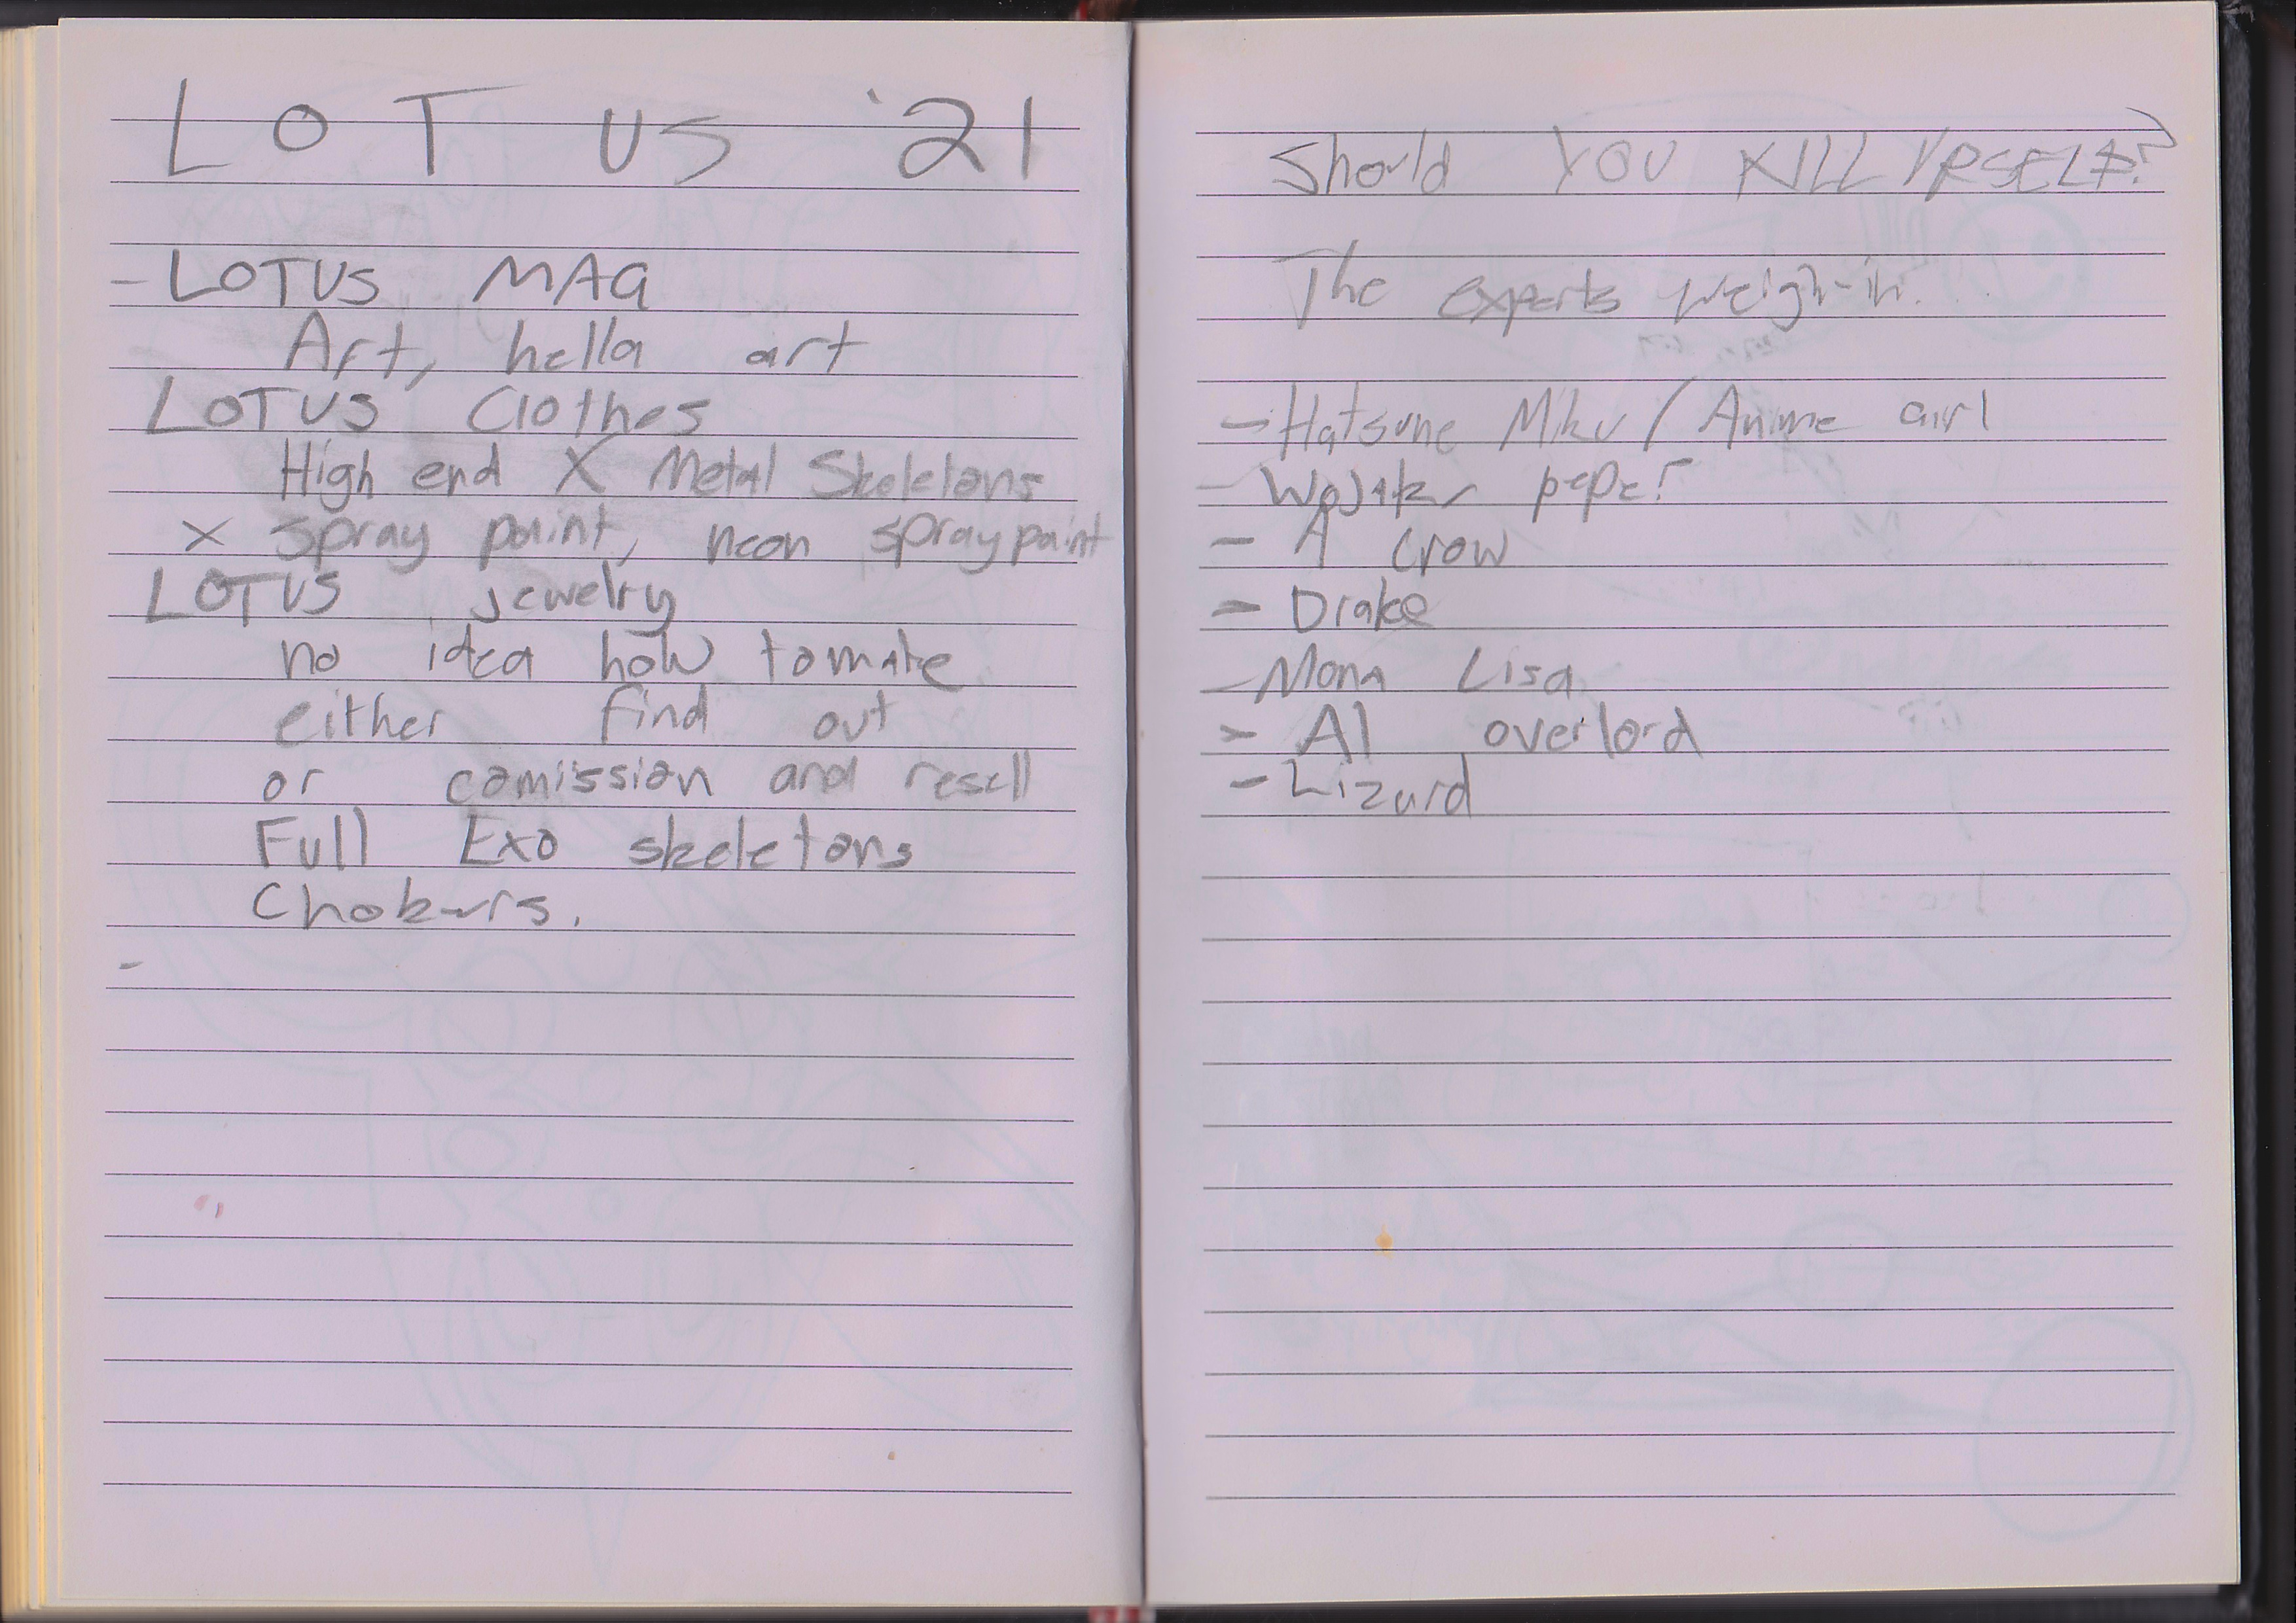 LOTUS '21
- LOTUS MAG
Art, hella art
LOTUS Clothes
High end X Metal Skeletons
X spray paint, neon spraypaint
LOTUS jewelry
no idea how to make
either find out
or comission and resell
Full Exo skeletons
Chokers.
-
Should YOU KILL YRSELF?
The experts weigh-in...
- Hatsune Miku / Anime girl
- Wojak, pepe?
- A crow
- Drake
- Mona Lisa
- AI overlord
- Lizard